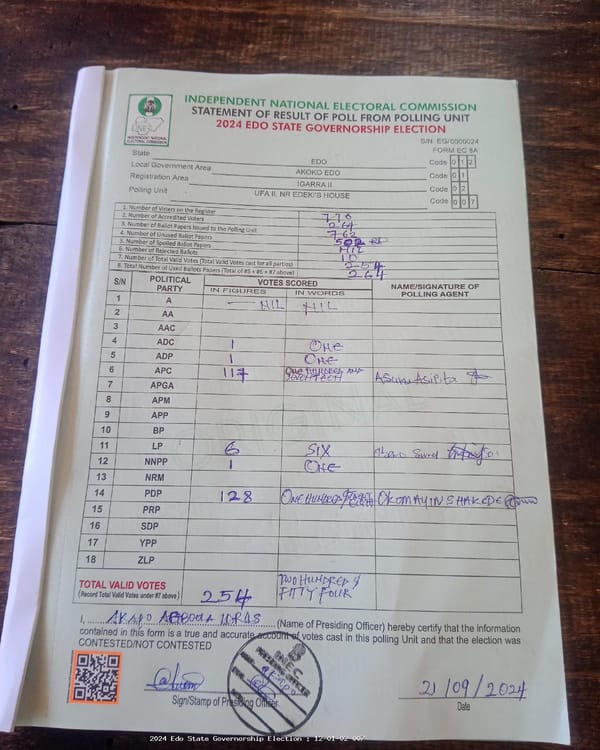 INDEPENDENT NATIONAL ELECTORAL COMMISSION
STATEMENT OF RESULT OF POLL FROM POLLING UNIT
2024 EDO STATE GOVERNORSHIP ELECTION
INDEPENDENT NATIONAL ELECTORAL COMMISSION
S/N: EG/0000024
FORM EC 8A
State EDO Code 0 1 2
Local Government Area AKOKO EDO Code 0 1
Registration Area IGARRA II Code 0 2
Polling Unit UFA II, NR EDEKI'S HOUSE Code 0 0 7
1. Number of Voters on the Register 770
2. Number of Accredited Voters 264
3. Number of Ballot Papers Issued to the Polling Unit 762
4. Number of Unused Ballot Papers
5. Number of Spoiled Ballot Papers NIL
6. Number of Rejected Ballots 10
7. Number of Total Valid Votes (Total Valid Votes cast for all parties) 254
8. Total Number of Used Ballots Papers (Total of #5 + #6 + #7 above) 264
S/N POLITICAL PARTY VOTES SCORED NAME/SIGNATURE OF POLLING AGENT
IN FIGURES IN WORDS
1 A NIL NIL
2 AA
3 AAC
4 ADC 1 ONE
5 ADP 1 ONE
6 APC 117 ONE HUNDRED AND
7 APGA
8 APM
9 APP
10 BP
11 LP 6 SIX
12 NNPP 1 ONE
13 NRM
14 PDP 128 ONE HUNDRED
15 PRP
16 SDP
17 YPP
18 ZLP
TOTAL VALID VOTES 254 TWO HUNDRED & FIFTY FOUR
(Record Total Valid Votes under #7 above)
I, (Name of Presiding Officer) hereby certify that the information
contained in this form is a true and accurate account of votes cast in this polling Unit and that the election was
CONTESTED/NOT CONTESTED
INEC
PRESIDING OFFICER
21/09/2024
Sign/Stamp of Presiding Officer Date
2024 Edo State Governorship Election : 12-01-02-007